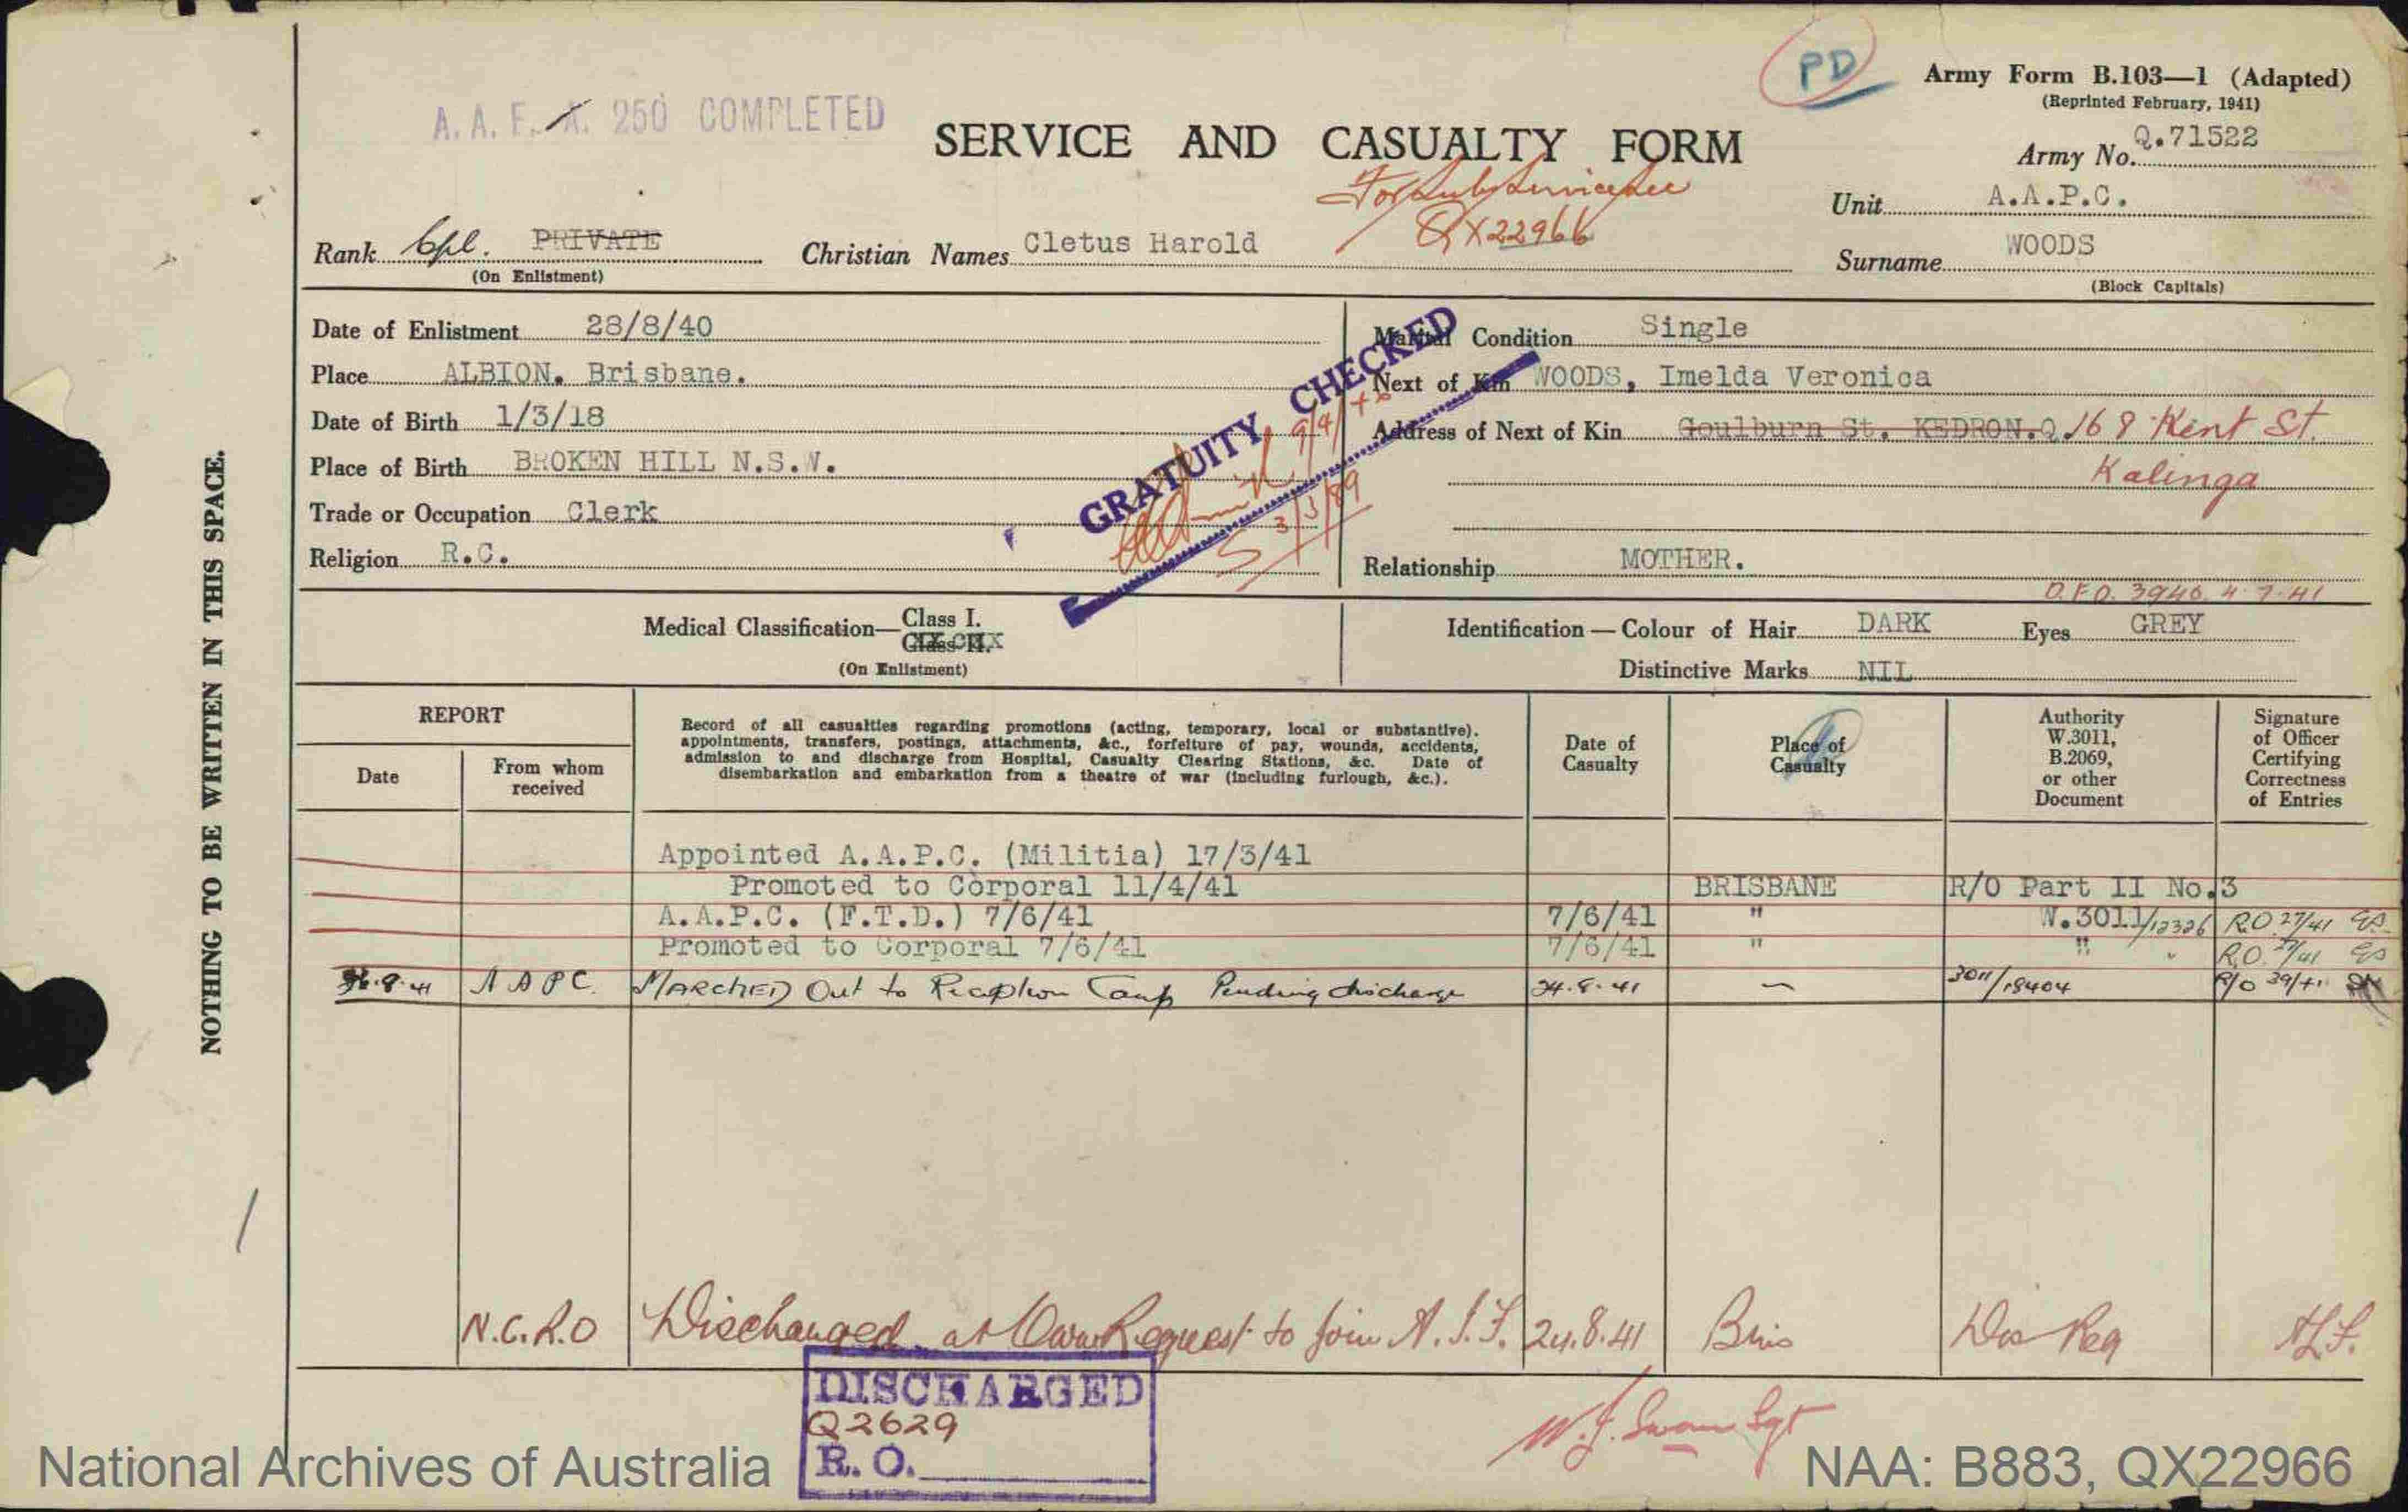 PD
Army Form B.103—1 (Adapted)
(Reprinted February, 1941)
A. A. F. A. 250 COMPLETED
SERVICE AND CASUALTY FORM
Army No. Q.71522
For Sub Service see
QX22966
Unit A.A.P.C.
Rank Cpl. PRIVATE
(On Enlistment)
Christian Names Cletus Harold
Surname WOODS
(Block Capitals)
Date of Enlistment 28/8/40
Place ALBION. Brisbane.
Date of Birth 1/3/18
Place of Birth BROKEN HILL N.S.W.
Trade or Occupation Clerk
Religion R.C.
GRATUITY CHECKED
9/4/
3/3/89
Marital Condition Single
Next of Kin WOODS, Imelda Veronica
Address of Next of Kin Goulburn St. KEDRON.Q. 168 Kent St.
Kalinga
Relationship MOTHER.
3946 4.7.41
Medical Classification— Class I.
Class II.
(On Enlistment)
Identification — Colour of Hair DARK Eyes GREY
Distinctive Marks NIL
NOTHING TO BE WRITTEN IN THIS SPACE.
REPORT
Date
From whom received
Record of all casualties regarding promotions (acting, temporary, local or substantive).
appointments, transfers, postings, attachments, &c., forfeiture of pay, wounds, accidents,
admission to and discharge from Hospital, Casualty Clearing Stations, &c. Date of
disembarkation and embarkation from a theatre of war (including furlough, &c.).
Date of Casualty
Place of Casualty
Authority W.3011, B.2069, or other Document
Signature of Officer Certifying Correctness of Entries
Appointed A.A.P.C. (Militia) 17/3/41
Promoted to Corporal 11/4/41 BRISBANE R/O Part II No.3
A.A.P.C. (F.T.D.) 7/6/41 7/6/41 " W.3011/12326 R.O 27/41
Promoted to Corporal 7/6/41 7/6/41 " " " R.O. 27/41
26.8.41 A A P C. MARCHED Out to Reception Camp Pending discharge 24.8.41 — 3011/18404 R/O 39/41
N.C.R.O Discharged at Own Request to join A.I.F. 24.8.41 Bris Dis Reg
DISCHARGED
Q2629
R. O.
W.J. Swan Sgt
National Archives of Australia
NAA: B883, QX22966